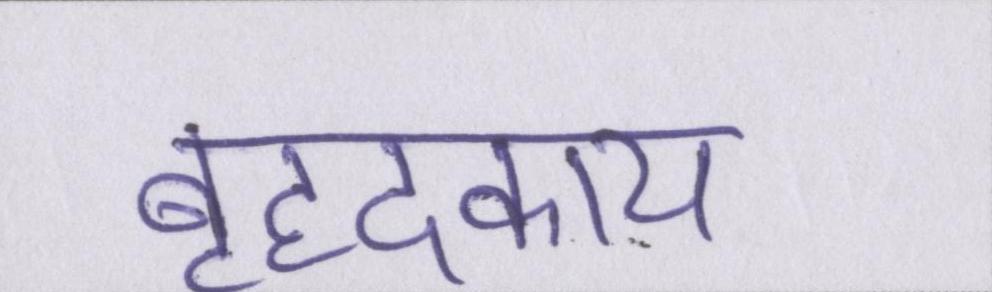 बृहदकाय